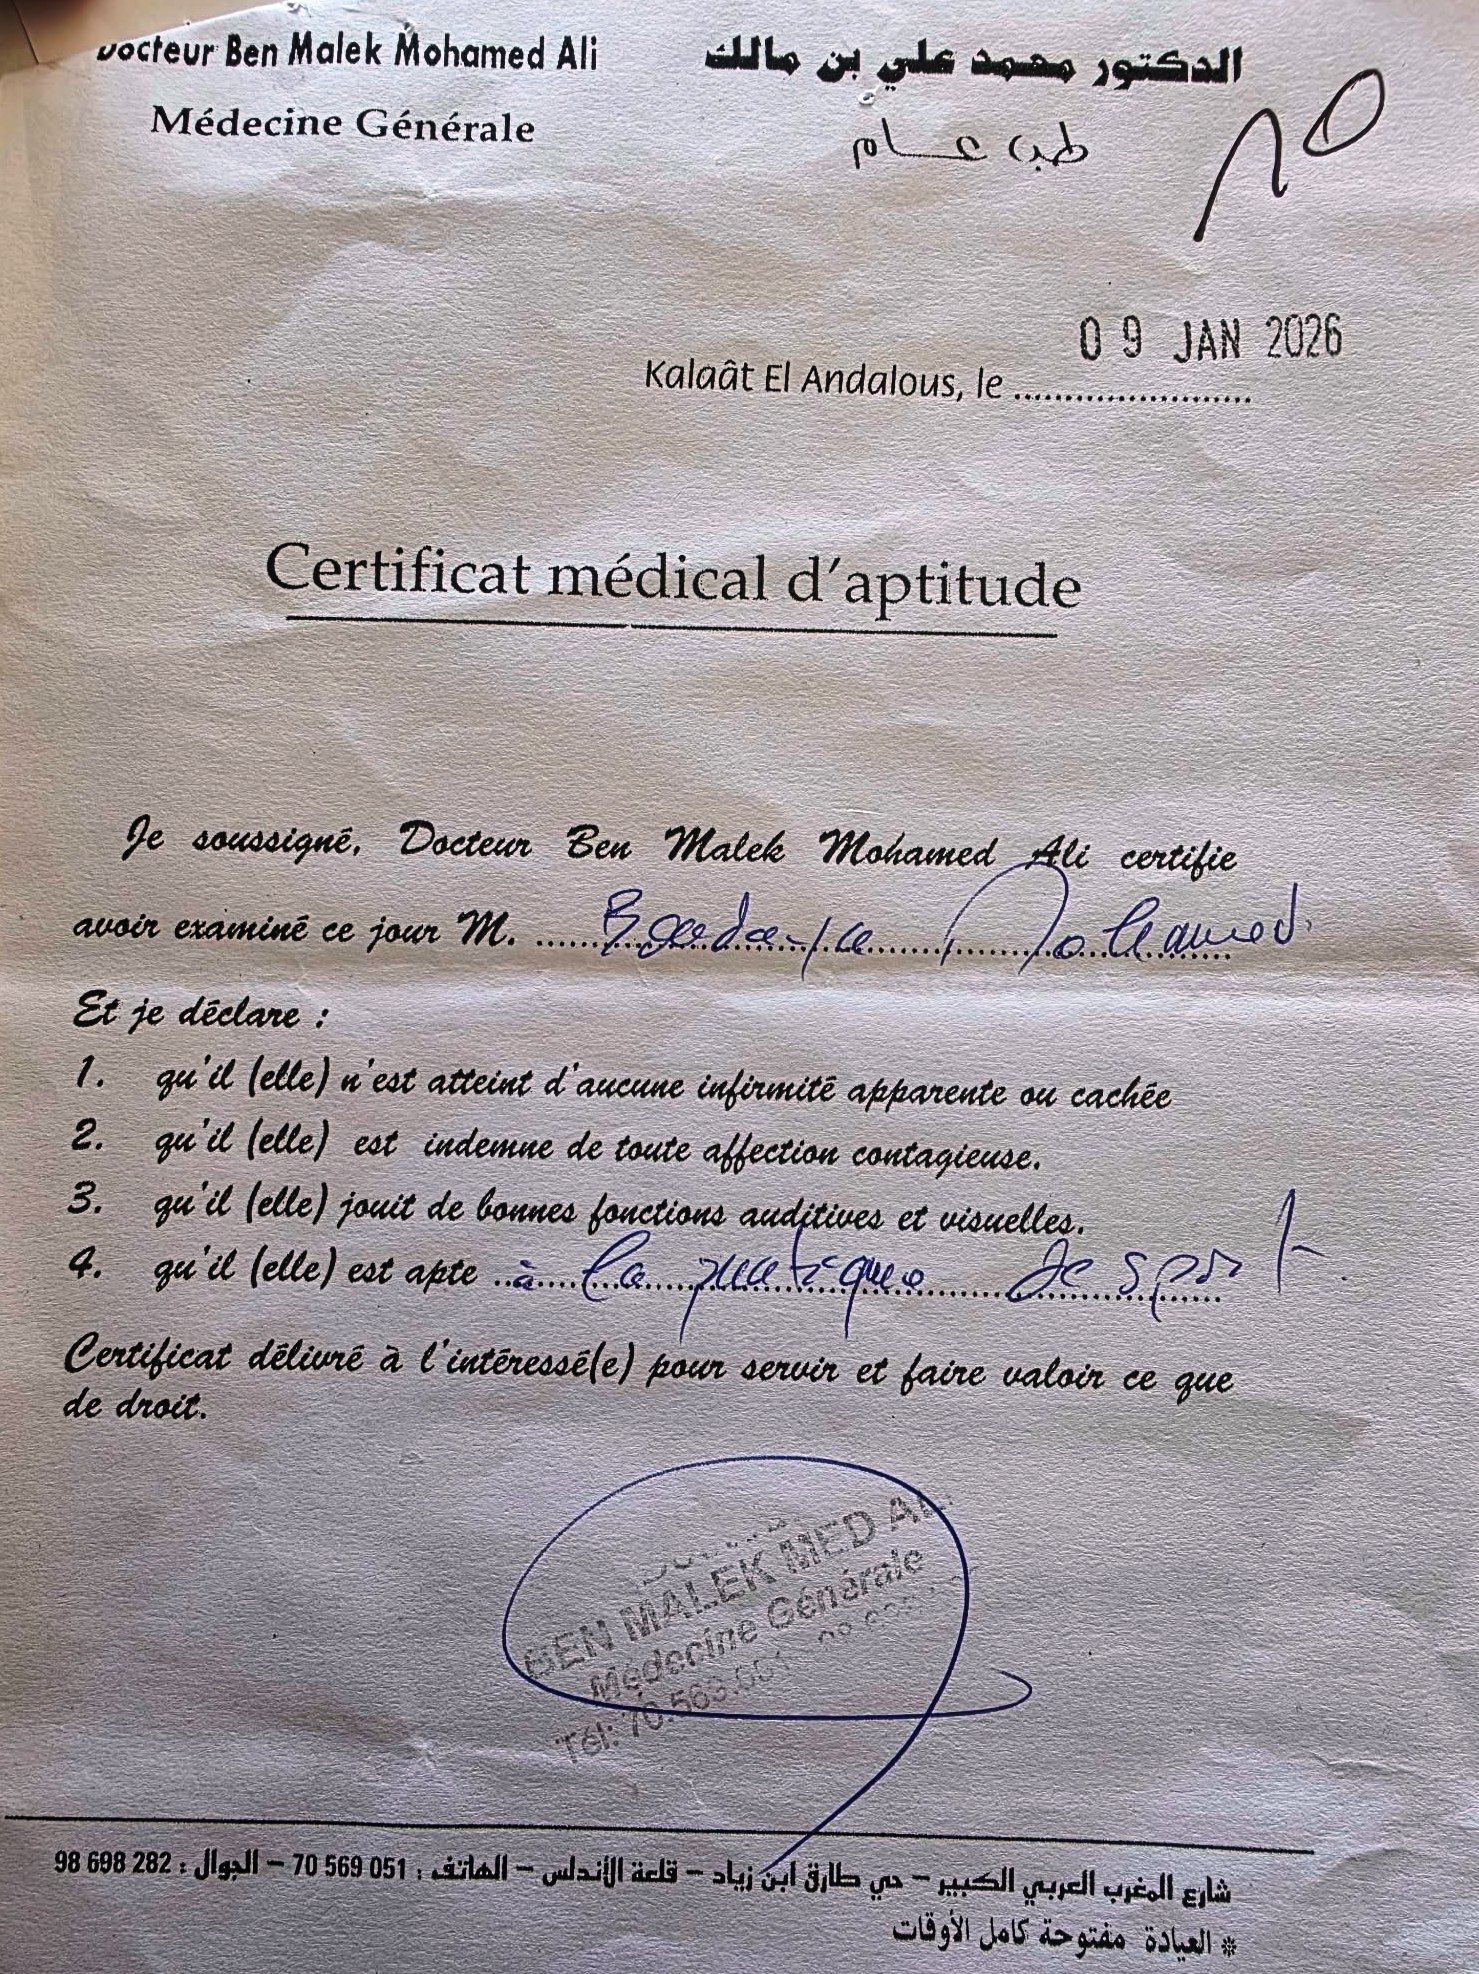 Docteur Ben Malek Mohamed Ali
الدكتور محمد علي بن مالك
Médecine Générale
طب عــام
09 JAN 2026
Kalaât El Andalous, le ........................
Certificat médical d'aptitude
Je soussigné, Docteur Ben Malek Mohamed Ali certifie
avoir examiné ce jour M. .......... Mohamed
Et je déclare :
1. qu'il (elle) n'est atteint d'aucune infirmité apparente ou cachée
2. qu'il (elle) est indemne de toute affection contagieuse.
3. qu'il (elle) jouit de bonnes fonctions auditives et visuelles.
4. qu'il (elle) est apte ..à la pratique de sport
Certificat délivré à l'intéressé(e) pour servir et faire valoir ce que
de droit.
BEN MALEK MED ALI
Médecine Générale
Tél: 70.569.051
شارع المغرب العربي الكبير – حي طارق ابن زياد – قلعة الأندلس – الهاتف : 70 569 051 – الجوال : 98 698 282
* العيادة مفتوحة كامل الأوقات